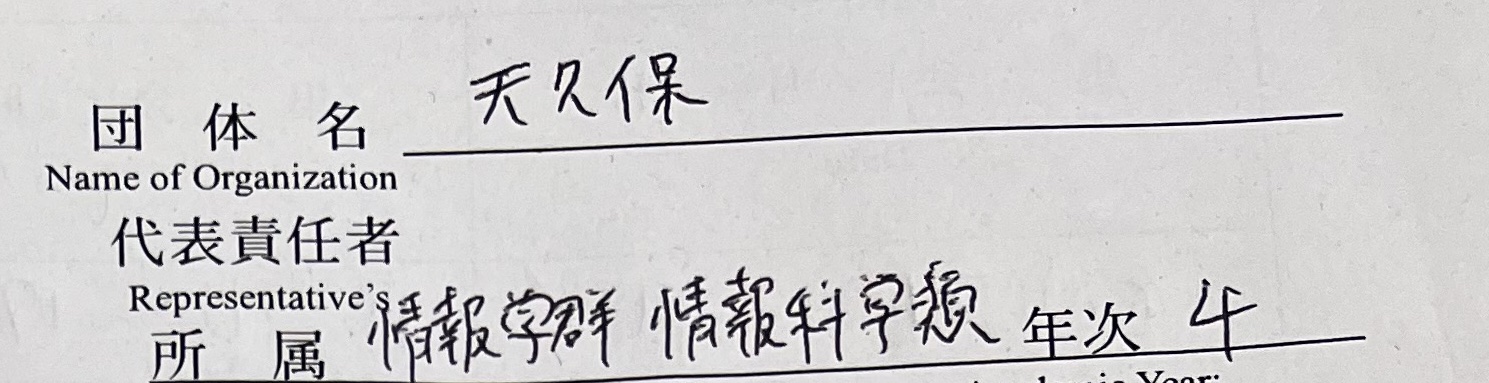 団 体 名 天久保
Name of Organization
代表責任者
Representative's
所 属 情報学群 情報科学類 年次 4
Year: